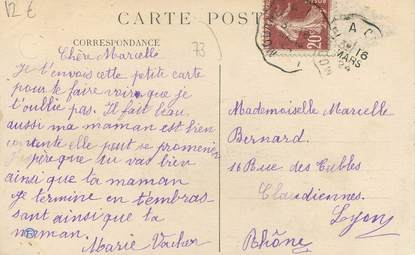 12 €
CARTE POST
CORRESPONDANCE
73
20c
16
MARS
Chère Marcelle
Je t'envois cette petite carte
pour te faire voir que je
t'oublie pas. Il fait beau
aussi ma maman est bien
contente elle peut se promener
j'espère que tu vas bien
ainsi que ta maman
je termine en t'embras
sant ainsi que ta
maman.
Marie
Mademoiselle Marcelle
Bernard.
16 Rue des Tables
Claudiennes.
Lyon
Rhône